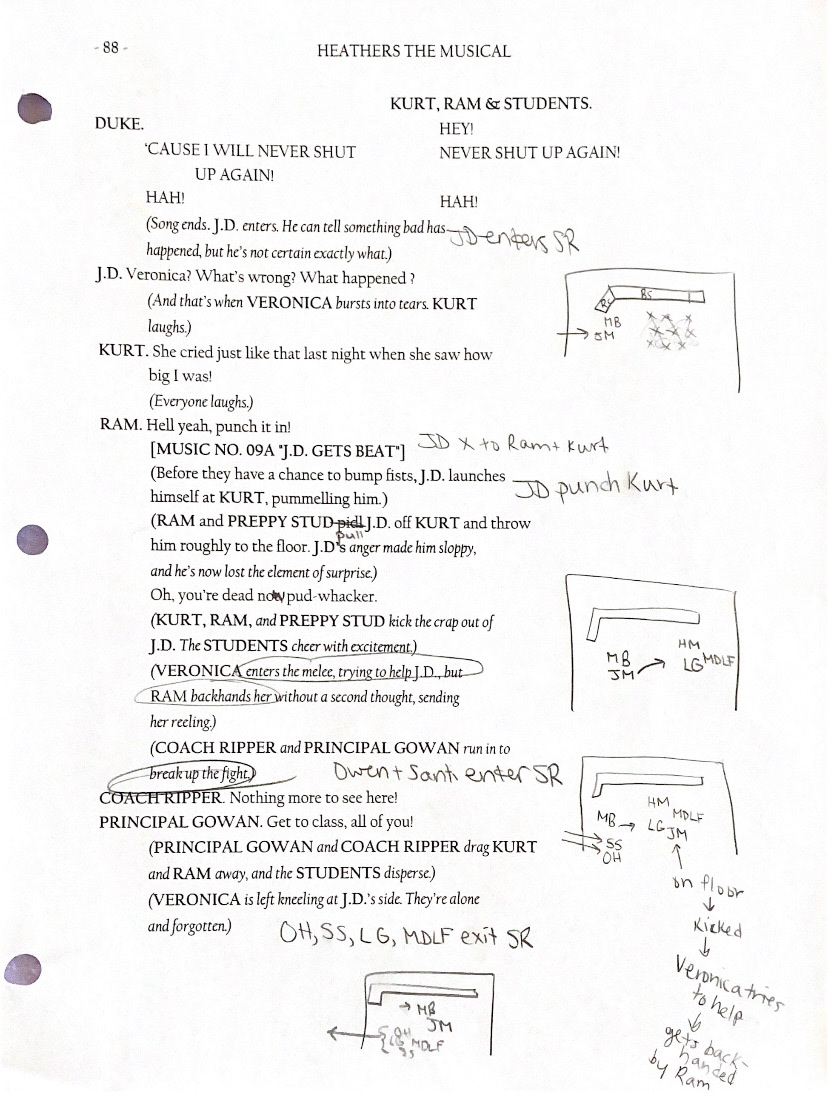 - 88 -
HEATHERS THE MUSICAL
KURT, RAM & STUDENTS.
DUKE.
HEY!
'CAUSE I WILL NEVER SHUT
NEVER SHUT UP AGAIN!
UP AGAIN!
HAH!
HAH!
(Song ends. J.D. enters. He can tell something bad has
JD enters SR
happened, but he's not certain exactly what.)
J.D. Veronica? What's wrong? What happened ?
(And that's when VERONICA bursts into tears. KURT
laughs.)
BS
BS
MB
JM
x x x
x x x
x x x
KURT. She cried just like that last night when she saw how
big I was!
(Everyone laughs.)
RAM. Hell yeah, punch it in!
[MUSIC NO. 09A "J.D. GETS BEAT"]
JD X to Ram + Kurt
(Before they have a chance to bump fists, J.D. launches
himself at KURT, pummelling him.)
JD punch Kurt
(RAM and PREPPY STUD pidl J.D. off KURT and throw
pull
him roughly to the floor. J.D's anger made him sloppy,
and he's now lost the element of surprise.)
Oh, you're dead now pud-whacker.
(KURT, RAM, and PREPPY STUD kick the crap out of
J.D. The STUDENTS cheer with excitement.)
HM
MB
LG MDLF
JM
(VERONICA enters the melee, trying to help J.D., but
RAM backhands her without a second thought, sending
her reeling.)
(COACH RIPPER and PRINCIPAL GOWAN run in to
break up the fight.)
Owen + Santi enter SR
COACH RIPPER. Nothing more to see here!
PRINCIPAL GOWAN. Get to class, all of you!
HM
MB
MDLF
LG
JM
SS
OH
on floor
kicked
Veronica tries
to help
gets back-
handed
by Ram
(PRINCIPAL GOWAN and COACH RIPPER drag KURT
and RAM away, and the STUDENTS disperse.)
(VERONICA is left kneeling at J.D.'s side. They're alone
and forgotten.)
OH, SS, LG, MDLF exit SR
MB
JM
OH
LG MDLF
SS